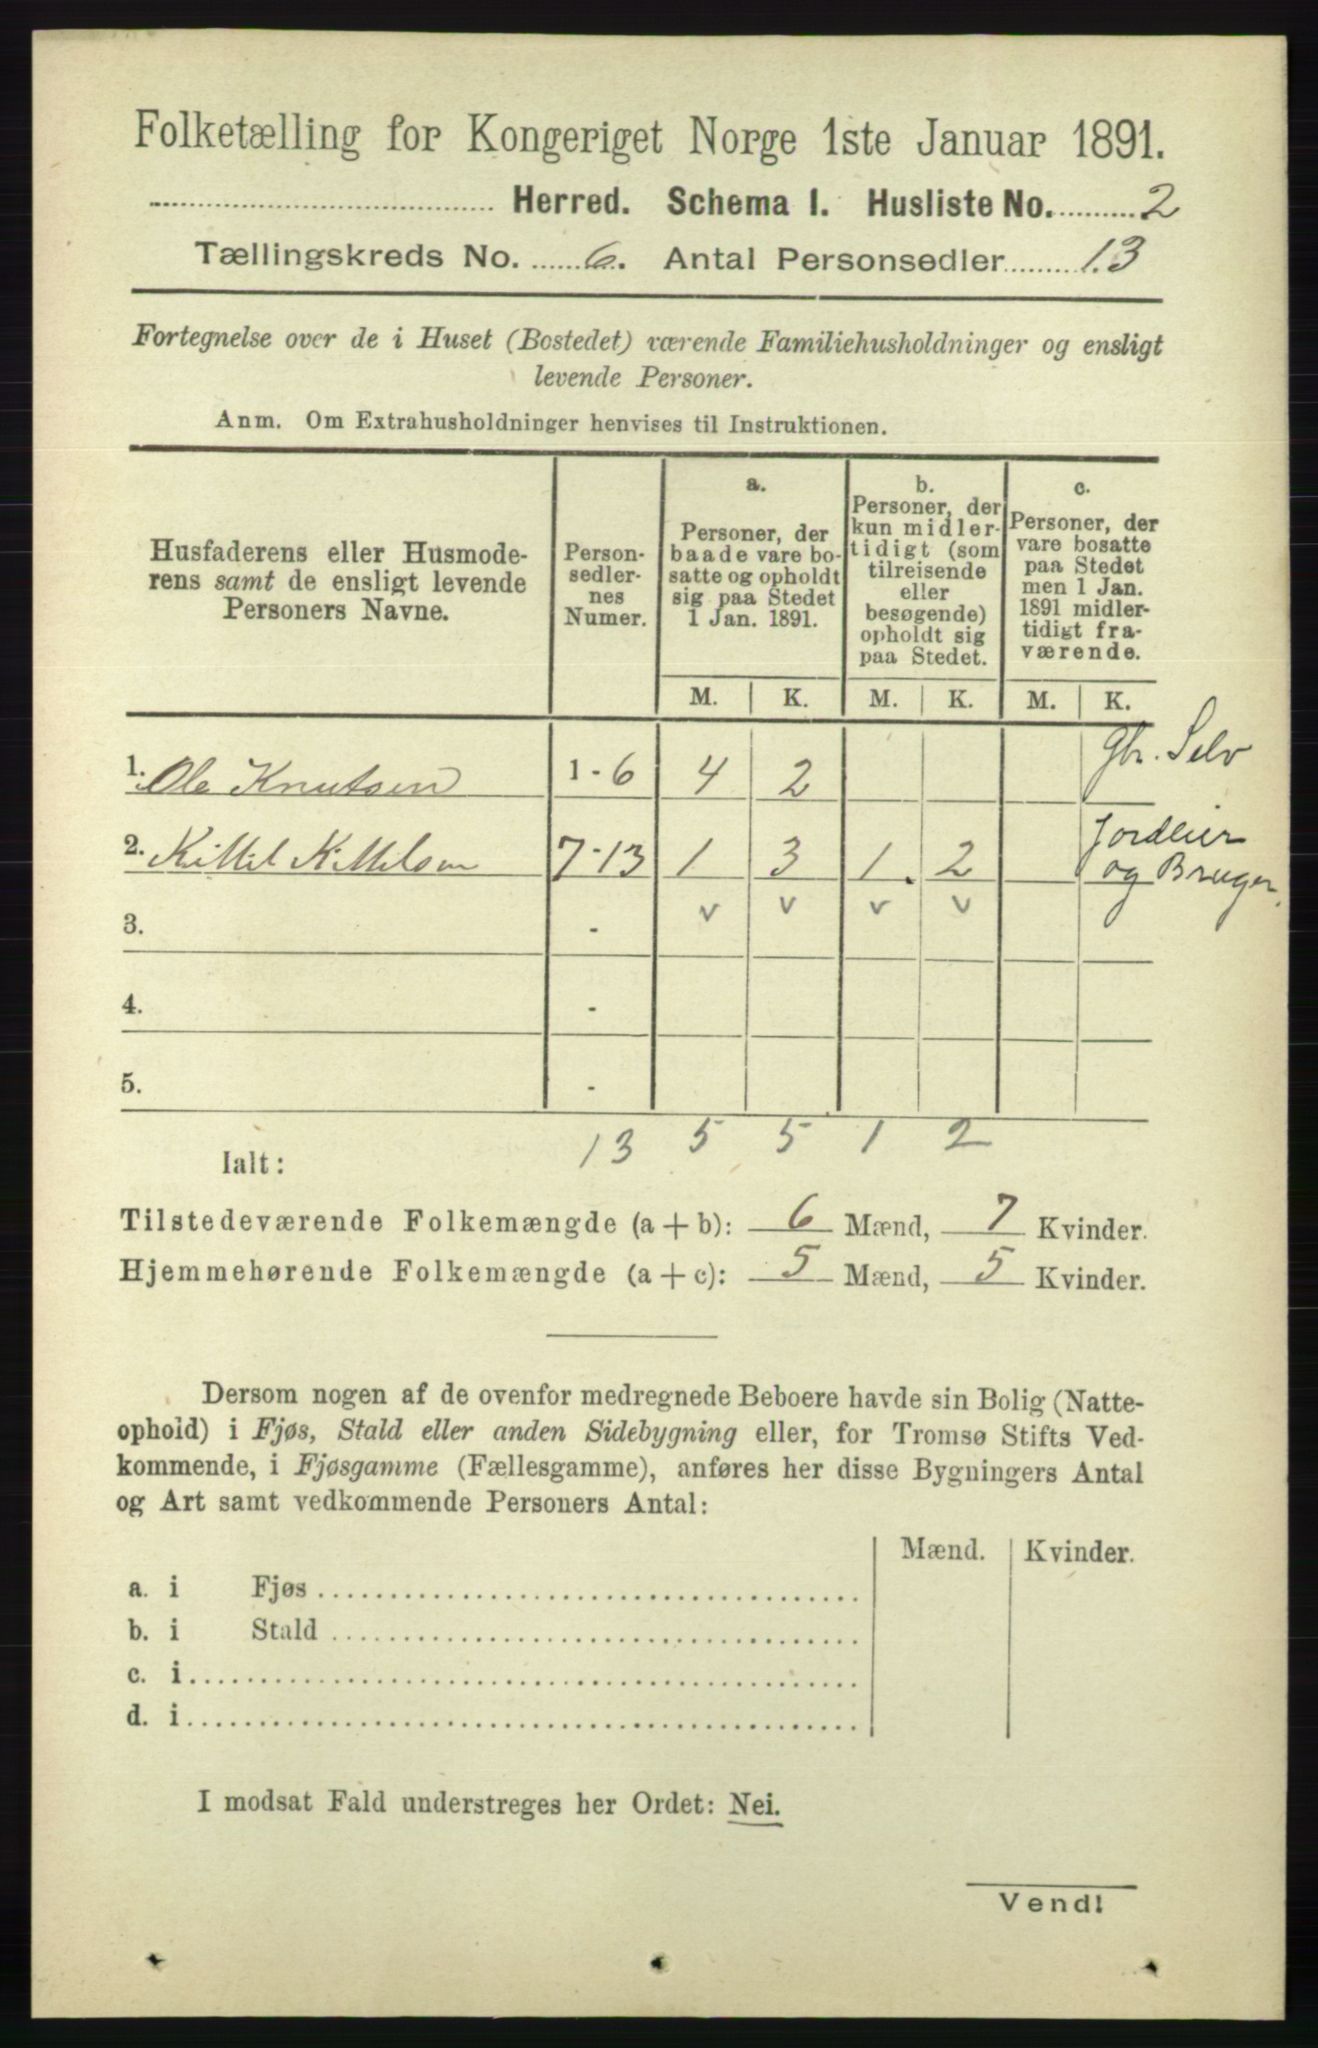 Folketælling for Kongeriget Norge 1ste Januar 1891.
Herred. Schema I. Husliste No. 2
Tællingskreds No. 6. Antal Personsedler 13
Fortegnelse over de i Huset (Bostedet) værende Familiehusholdninger og ensligt
levende Personer.
Anm. Om Extrahusholdninger henvises til Instruktionen.
Husfaderens eller Husmode-
rens samt de ensligt levende
Personers Navne.
Person-
sedler-
nes
Numer.
a.
Personer, der
baade vare bo-
satte og opholdt
sig paa Stedet
1 Jan. 1891.
b.
Personer, der
kun midler-
tidigt (som
tilreisende
eller
besøgende)
opholdt sig
paa Stedet.
c.
Personer, der
vare bosatte
paa Stedet
men 1 Jan.
1891 midler-
tidigt fra-
værende.
M. K. M. K. M. K.
1. Ole Knutsen 1-6 4 2 Gbr. Selv
2. Kittil Kittilsen 7-13 1 3 1. 2 Jordeier
og Bruger.
v v v v
3. -
4. -
5. -
13 5 5 1 2
Ialt:
Tilstedeværende Folkemængde (a + b): 6 Mænd, 7 Kvinder.
Hjemmehørende Folkemængde (a + c): 5 Mænd, 5 Kvinder.
Dersom nogen af de ovenfor medregnede Beboere havde sin Bolig (Natte-
ophold) i Fjøs, Stald eller anden Sidebygning eller, for Tromsø Stifts Ved-
kommende, i Fjøsgamme (Fællesgamme), anføres her disse Bygningers Antal
og Art samt vedkommende Personers Antal:
Mænd. Kvinder.
a. i Fjøs
b. i Stald
c. i
d. i
I modsat Fald understreges her Ordet: Nei.
Vend!